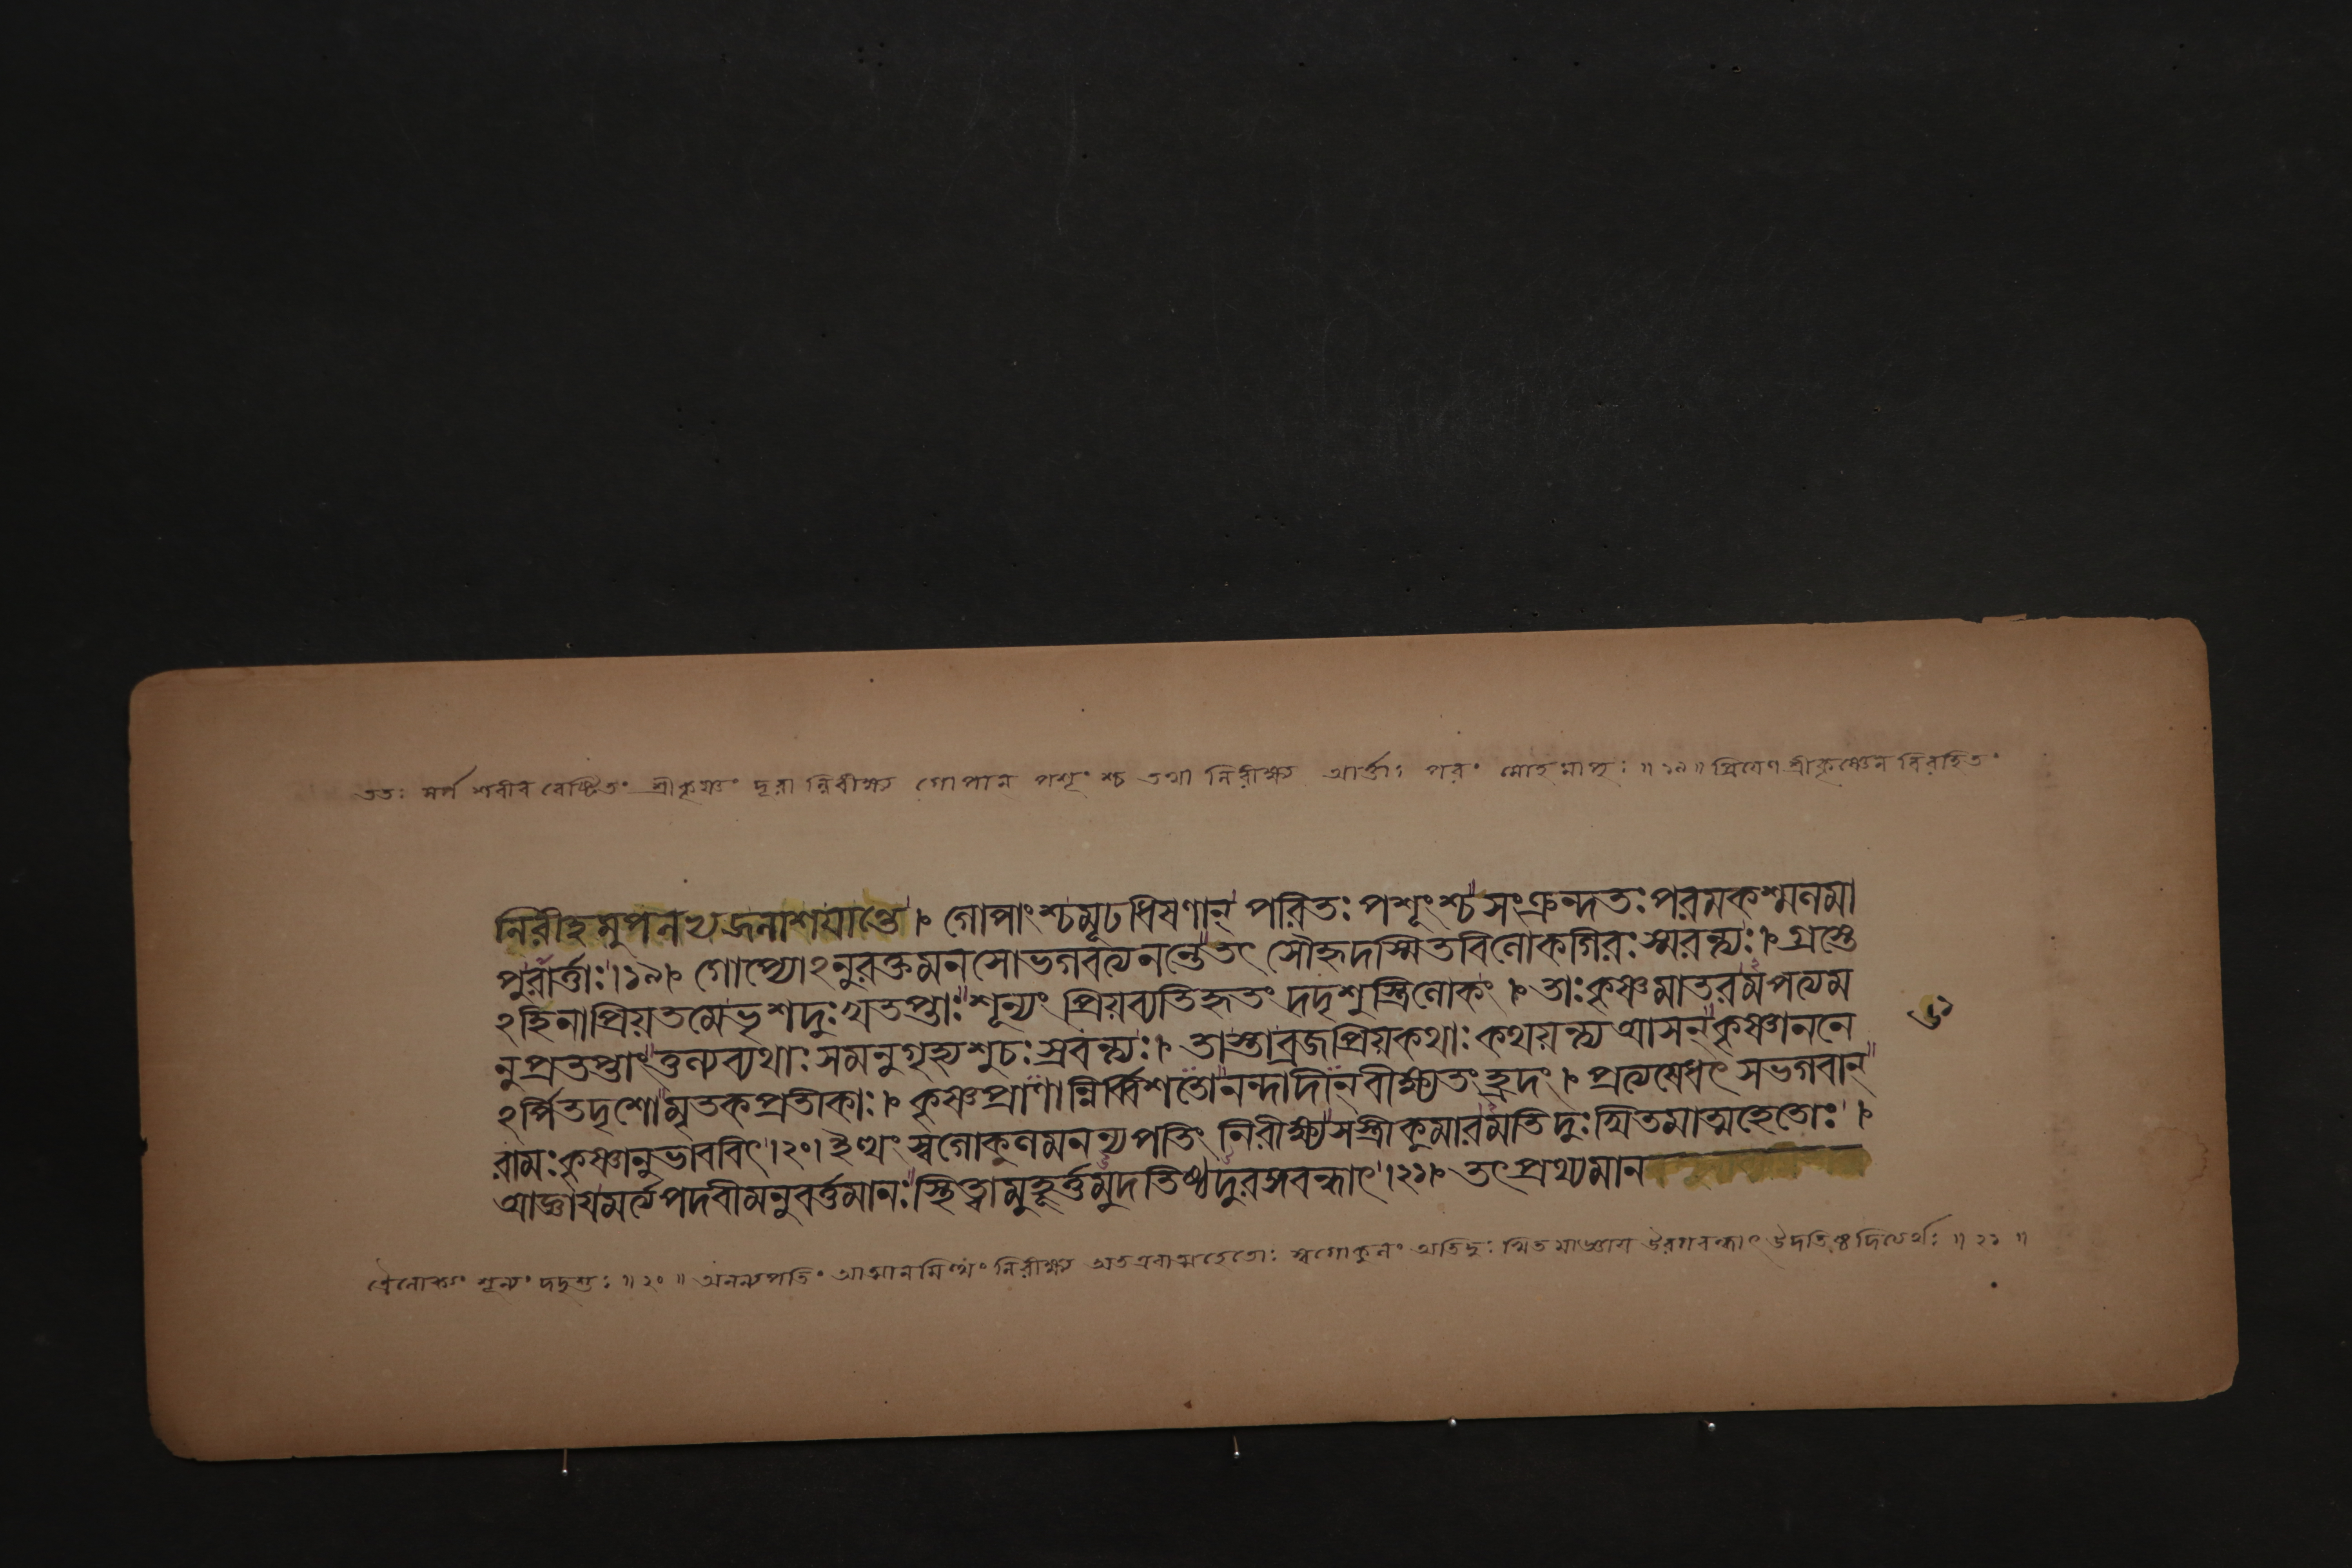 ততঃ সর্প শরীর বেষ্টিতং শ্রীকৃষ্ণং দূরান্নিরীক্ষ্য গোপান্ পশূংশ্চ তথা নিরীক্ষ্য আর্ত্তাঃ পরং মোহমাপুঃ ॥ ১৯ ॥ প্রিয়েণ শ্রীকৃষ্ণেন বিরহিতং
নিরীহমুপলভ্যজলাশয়ান্তে। গোপাংশ্চমূঢধিষণান্ পরিতঃ পশূংশ্চ সংক্রন্দতঃ পরমকশ্মলমা
পুরার্ত্তাঃ।১৯। গোপ্যোঽনুরক্তমনসোভগবত্যনন্তেতৎ সৌহৃদস্মিতবিলোকগিরঃ স্মরন্ত্যঃ। গ্রস্তে
ঽহিনাপ্রিয়তমেভৃশদুঃখতপ্তাঃ শূন্যং প্রিয়ব্যতিহৃতং দদৃশুস্ত্রিলোকং। তাঃ কৃষ্ণমাতরমপত্যম
নুপ্রতপ্তাং তুল্যব্যথাঃ সমনুগৃহ্যশুচঃ স্রবন্ত্যঃ। তাস্তাব্রজপ্রিয়কথাঃ কথয়ন্ত্য আসন্ কৃষ্ণাননে
ঽর্পিতদৃশোমৃতকপ্রতীকাঃ। কৃষ্ণপ্রাণান্নির্ব্বিশতোনন্দাদীন্ বীক্ষ্যতং হ্রদং। প্রত্যষেধৎ সভগবান্
রামঃ কৃষ্ণানুভাববিৎ।২০। ইত্থং স্বগোকুলমনন্যপতিং নিরীক্ষ্য সস্ত্রীকুমারমতিদুঃখিতমাত্মহেতোঃ।
আজ্ঞায়মর্ত্যপদবীমনুবর্ত্তমানঃ স্থিত্বামুহূর্ত্তমুদতিষ্ঠদুরঙ্গবন্ধাৎ।২১। তৎপ্রথ্যমান
ত্রৈলোক্যং শূন্যং দদৃশুঃ ॥ ২০ ॥ অনন্যপতিং আত্মানমিত্থং নিরীক্ষ্য অতএবাত্মহেতোঃ স্বগোকুলং অতিদুঃখিতমাজ্ঞায় উরগবন্ধাৎ উদতিষ্ঠদিত্যর্থঃ ॥ ২১ ॥